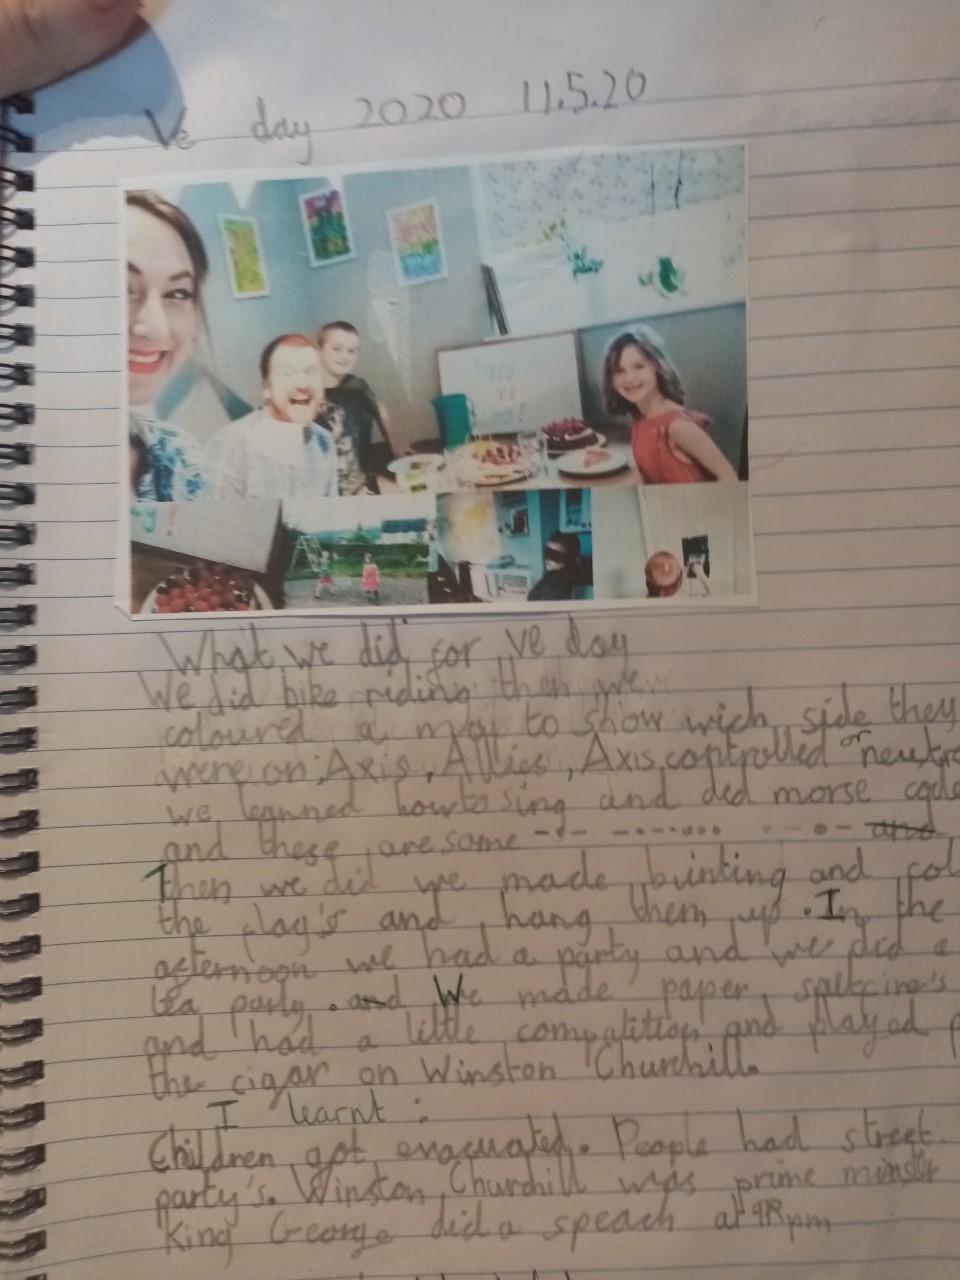 Ve day 2020 11.5.20
y!
What we did for ve day
We did bike riding then we
coloured a map to show wich side they
were on: Axis, Allies, Axis controlled or neutr
we learned how to sing and did morse code
and these are some and
Then we did we made bunting and col
the flag's and hang them up. In the
afternoon we had a party and we did a
tea party. and We made paper spitfire's
and had a little compatition and played p
the cigar on Winston Churchill.
I learnt :
Children got evacuated. People had street
party's. Winston Churchill was prime minster
King George did a speach at 9 pm